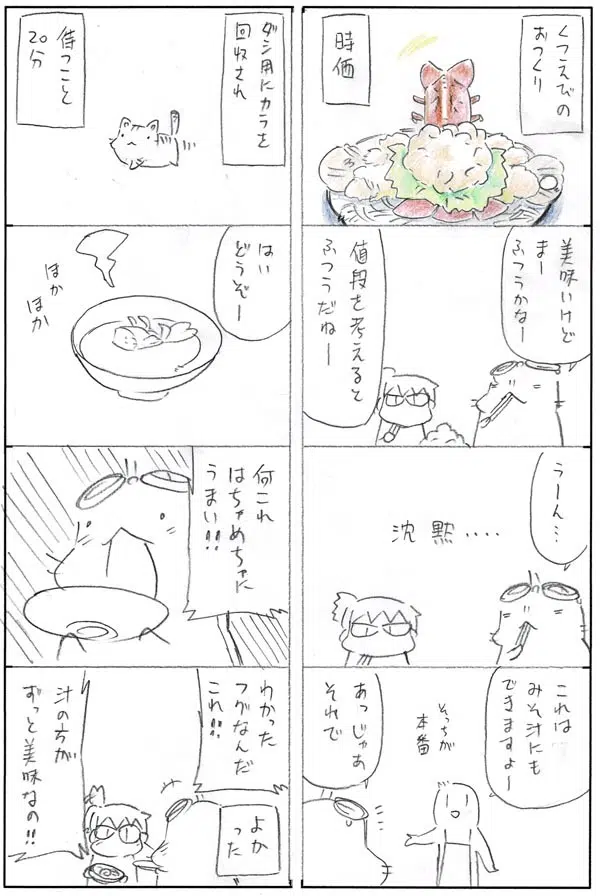 くつえびの
おつくり
時価
美味いけど
まー
ふつうかなー
値段を考えると
ふつうだねー
うーん…
沈黙....
これは
みそ汁にも
できますよー
そっちが
本番
あっじゃあ
それで
ダシ用にカラを
回収され
待つこと
20分
はい
どうぞー
ほか
ほか
何これ
はちゃめちゃに
うまい!!
わかった
フグなんだ
これ!!
よか
った
汁の方が
ずっと美味なの!!